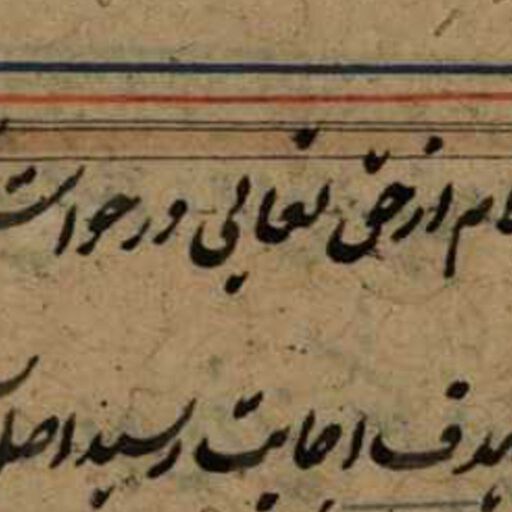 از حق تعالی در خواست
هدف اجابت رسید اصل